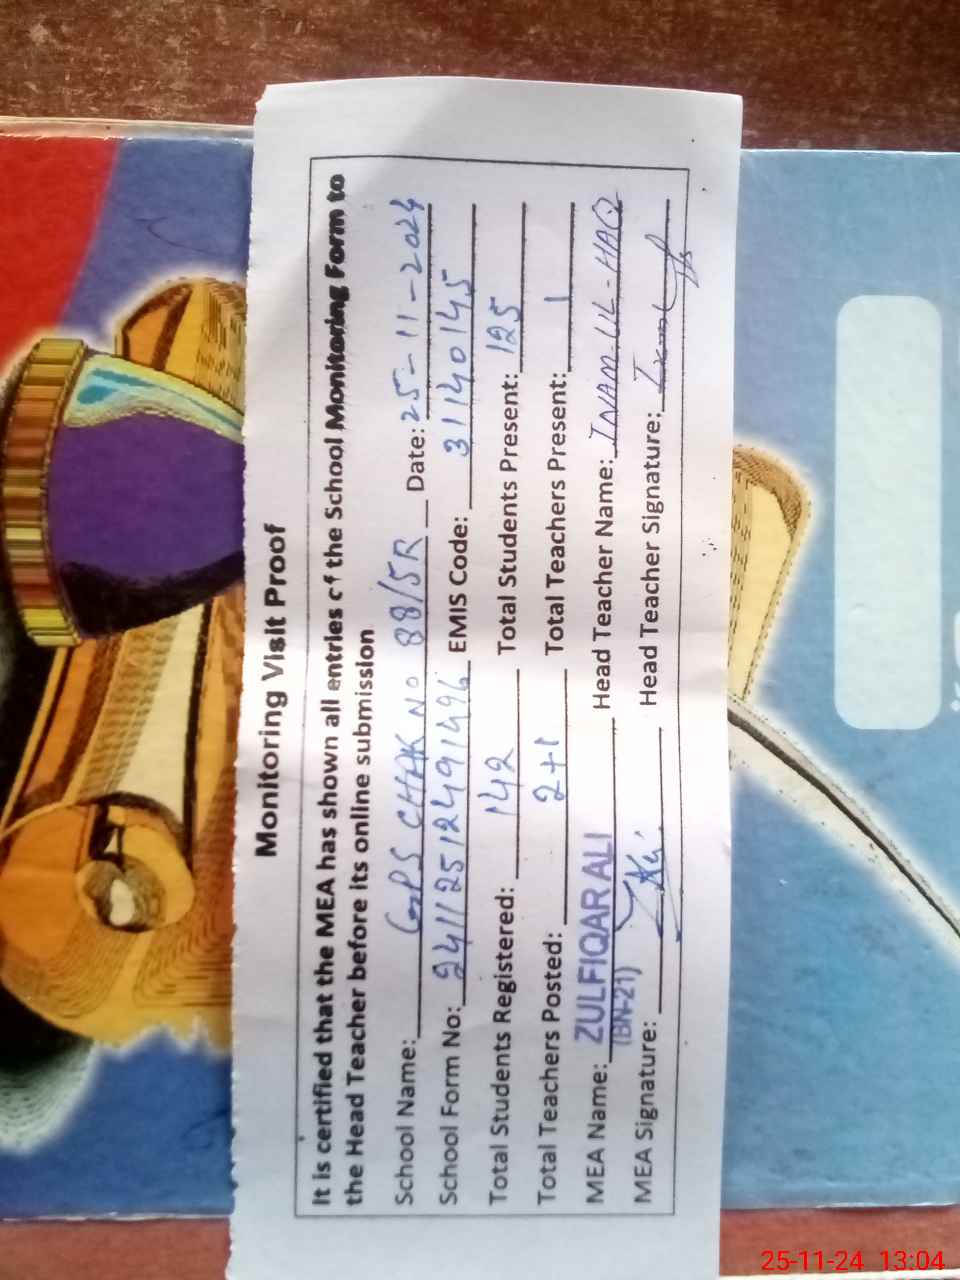 Monitoring Visit Proof
It is certified that the MEA has shown all entries of the School Monitoring Form to
the Head Teacher before its online submission
School Name: GPS CHAK No 88/5R Date: 25-11-2024
School Form No: 24112512491496 EMIS Code: 31140145
Total Students Registered: 142 Total Students Present: 125
Total Teachers Posted: 2+1 Total Teachers Present: 1
MEA Name: ZULFIQAR ALI Head Teacher Name: INAM-UL-HAQ
(BN-21)
MEA Signature: Head Teacher Signature:
25-11-24 13:04